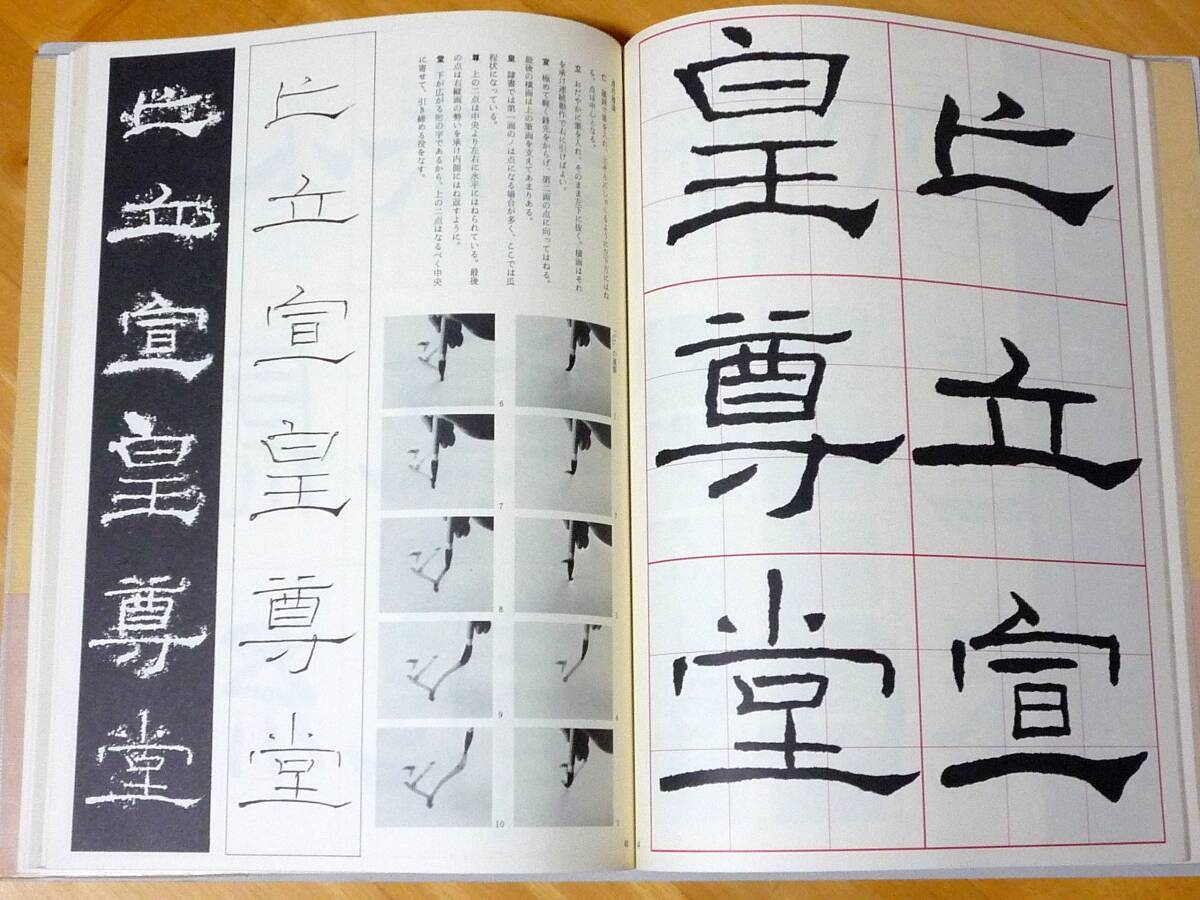 亡
立
宣
皇
尊
堂
亡 筆を入れ、
る。点は中心となる。
立 おだやかに筆を入れ、そのまま左下に抜く。横画はそれ
を承け連続動作で右に引けばよい。
宣 極めて軽く鋒先をからげ、第二画の点に向ってはねる。
最後の横画は上の筆画を支えてあまりある。
皇 隷書では第一画のノは点になる場合が多く、ここでは広
状になっている。
尊 上の二点は中央より左右に水平にはねられている。最後
の点は右縦画の勢いを承け内側にはね返すように。
堂 下が広がる形の字であるから、上の二点はなるべく中央
に寄せて、引き締める役をなす。
6
7
8
9
10
亡
立
宣
皇
尊
堂
亡
立
宣
皇
尊
堂